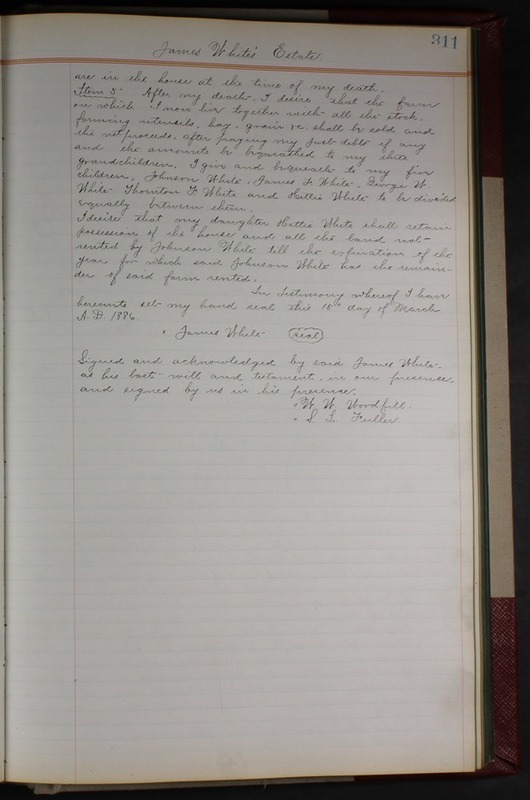 311
James White's Estate
are in the house at the time of my death.
Item 5" After my death, I desire, that the farm
on which I now live together with all the stock,
farming utensils, hay, grain &c. shall be sold and
the net proceeds, after paying my just debts if any
and the amounts be bequeathed to my three
grandchildren, I give and bequeath to my five
children, Johnson White, James F. White, George W.
White Thornton F. White and Hettie White to be divided
equally between them.
I desire that my daughter Hettie White shall retain
possession of the house and all the land not
rented by Johnson White till the expiration of the
year for which said Johnson White has the remain-
der of said farm rented.
In Testimony whereof I have
hereunto set my hand seal this 15th day of March
A.D. 1886
x James White (seal)
Signed and acknowledged by said James White
as his last will and testament, in our presence,
and signed by us in his presence.
x W. W. Woodfill.
x S. L. Fuller.